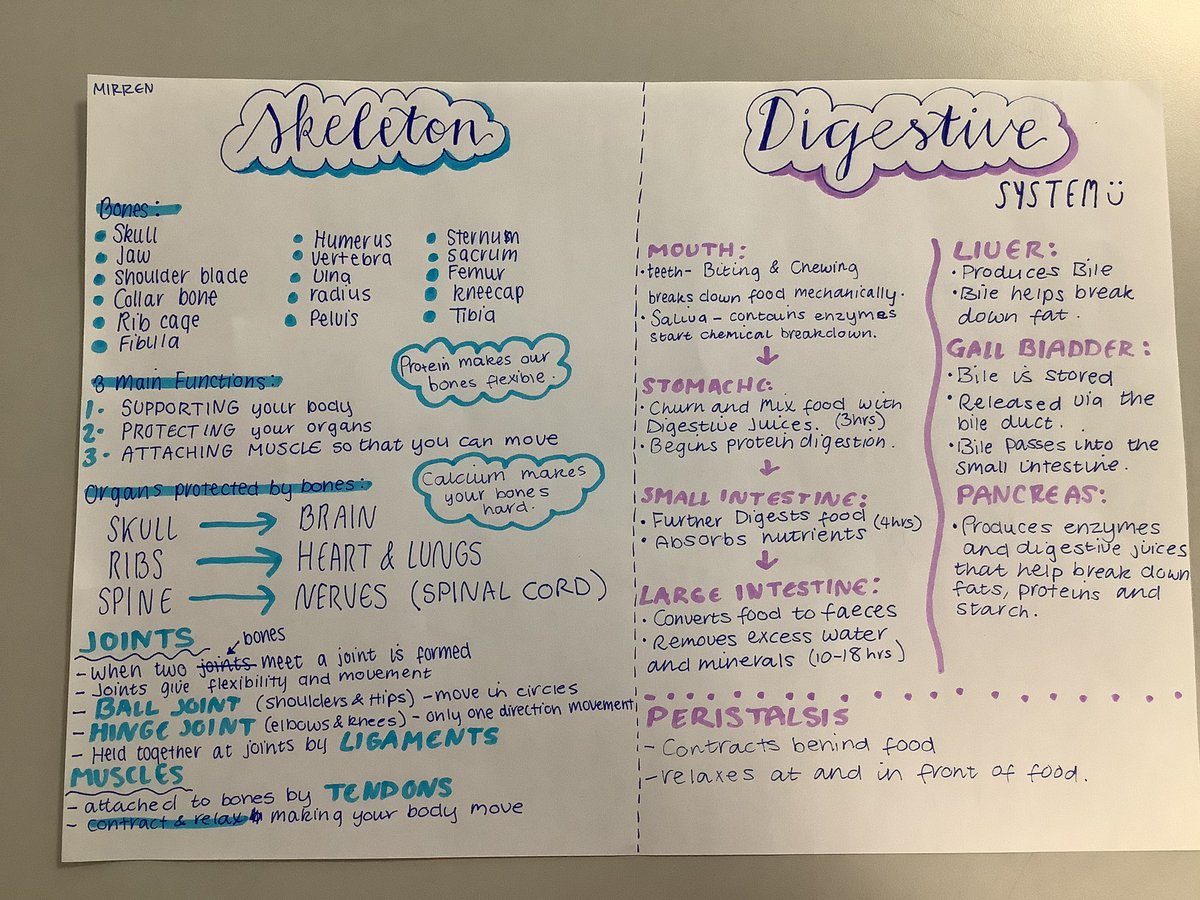 MIRREN
Skeleton
Bones:
Skull
Jaw
Shoulder blade
Collar bone
Rib cage
Fibula
Humerus
Vertebra
Ulna
radius
Pelvis
Sternum
sacrum
Femur
kneecap
Tibia
Protein makes our
bones flexible.
3 Main Functions:
1- SUPPORTING your body
2- PROTECTING your organs
3- ATTACHING MUSCLE so that you can move
Calcium makes
your bones
hard.
Organs protected by bones:
SKULL → BRAIN
RIBS → HEART & LUNGS
SPINE → NERVES (SPINAL CORD)
JOINTS
bones
- When two joints meet a joint is formed
- Joints give flexibility and movement
- BALL JOINT (shoulders & Hips) - move in circles
- HINGE JOINT (elbows & knees) - only one direction movement
- Held together at joints by LIGAMENTS
MUSCLES
- attached to bones by TENDONS
- contract & relax making your body move
Digestive
SYSTEM
MOUTH:
• teeth- Biting & Chewing
breaks down food mechanically.
• Saliva - contains enzymes
start chemical breakdown.
↓
STOMACHC:
• Churn and Mix food with
Digestive Juices. (3hrs)
• Begins protein digestion.
↓
SMALL INTESTINE:
• Further Digests food (4hrs)
• Absorbs nutrients
↓
LARGE INTESTINE:
• Converts food to faeces
• Removes excess water
and minerals (10-18hrs)
LIVER:
• Produces Bile
• Bile helps break
down fat.
GALL BLADDER:
• Bile is stored
• Released via the
bile duct.
• Bile passes into the
small intestine.
PANCREAS:
• Produces enzymes
and digestive juices
that help break down
fats, proteins and
starch.
PERISTALSIS
- Contracts behind food
- relaxes at and in front of food.